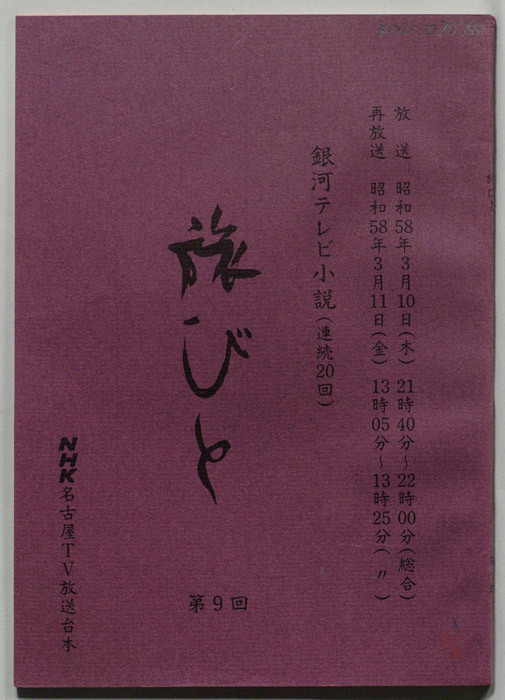 放送 昭和58年3月10日(木) 21時40分～22時00分(総合)
再放送 昭和58年3月11日(金) 13時05分～13時25分(〃)
銀河テレビ小説(連続20回)
旅びと
第9回
NHK名古屋TV放送台本